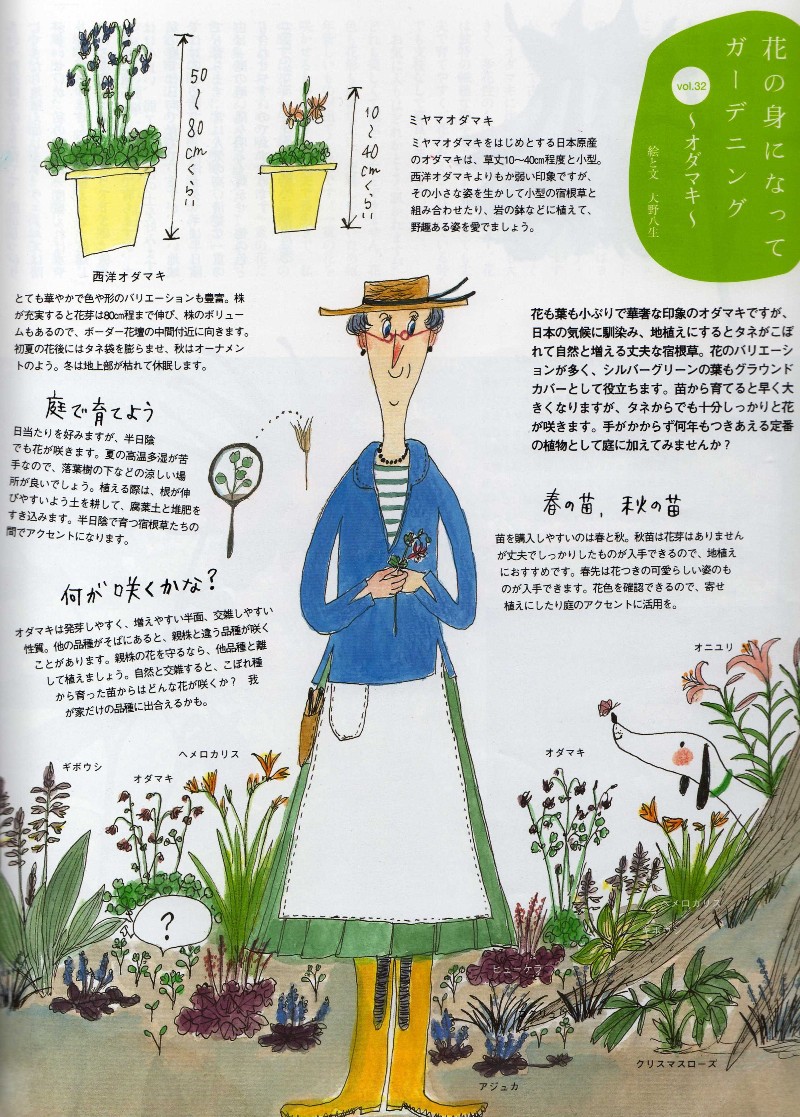 花の身になって
ガーデニング
vol.32
〜オダマキ〜
絵と文　大野八生
50〜80cmくらい
10〜40cmくらい
ミヤマオダマキ
ミヤマオダマキをはじめとする日本原産
のオダマキは、草丈10〜40cm程度と小型。
西洋オダマキよりもか弱い印象ですが、
その小さな姿を生かして小型の宿根草と
組み合わせたり、岩の鉢などに植えて、
野趣ある姿を愛でましょう。
西洋オダマキ
とても華やかで色や形のバリエーションも豊富。株
が充実すると花芽は80cm程まで伸び、株のボリュー
ムもあるので、ボーダー花壇の中間付近に向きます。
初夏の花後にはタネ袋を膨らませ、秋はオーナメン
トのよう。冬は地上部が枯れて休眠します。
花も葉も小ぶりで華奢な印象のオダマキですが、
日本の気候に馴染み、地植えにするとタネがこぼ
れて自然と増える丈夫な宿根草。花のバリエーショ
ンが多く、シルバーグリーンの葉もグラウンド
カバーとして役立ちます。苗から育てると早く大
きくなりますが、タネからでも十分しっかりと花
が咲きます。手がかからず何年もつきあえる定番
の植物として庭に加えてみませんか？
庭で育てよう
日当たりを好みますが、半日陰
でも花が咲きます。夏の高温多湿が苦
手なので、落葉樹の下などの涼しい場
所が良いでしょう。植える際は、根が伸
びやすいよう土を耕して、腐葉土と堆肥を
すき込みます。半日陰で育つ宿根草たちの
間でアクセントになります。
春の苗，秋の苗
苗を購入しやすいのは春と秋。秋苗は花芽はありません
が丈夫でしっかりしたものが入手できるので、地植え
におすすめです。春先は花つきの可愛らしい姿のも
のが入手できます。花色を確認できるので、寄せ
植えにしたり庭のアクセントに活用を。
何が咲くかな？
オダマキは発芽しやすく、増えやすい半面、交雑しやすい
性質。他の品種がそばにあると、親株と違う品種が咲く
ことがあります。親株の花を守るなら、他品種と離
して植えましょう。自然と交雑すると、こぼれ種
から育った苗からはどんな花が咲くか？　我
が家だけの品種に出合えるかも。
オニユリ
ギボウシ
オダマキ
ヘメロカリス
オダマキ
ヘメロカリス
ギボウシ
？
ヒューケラ
アジュカ
クリスマスローズ